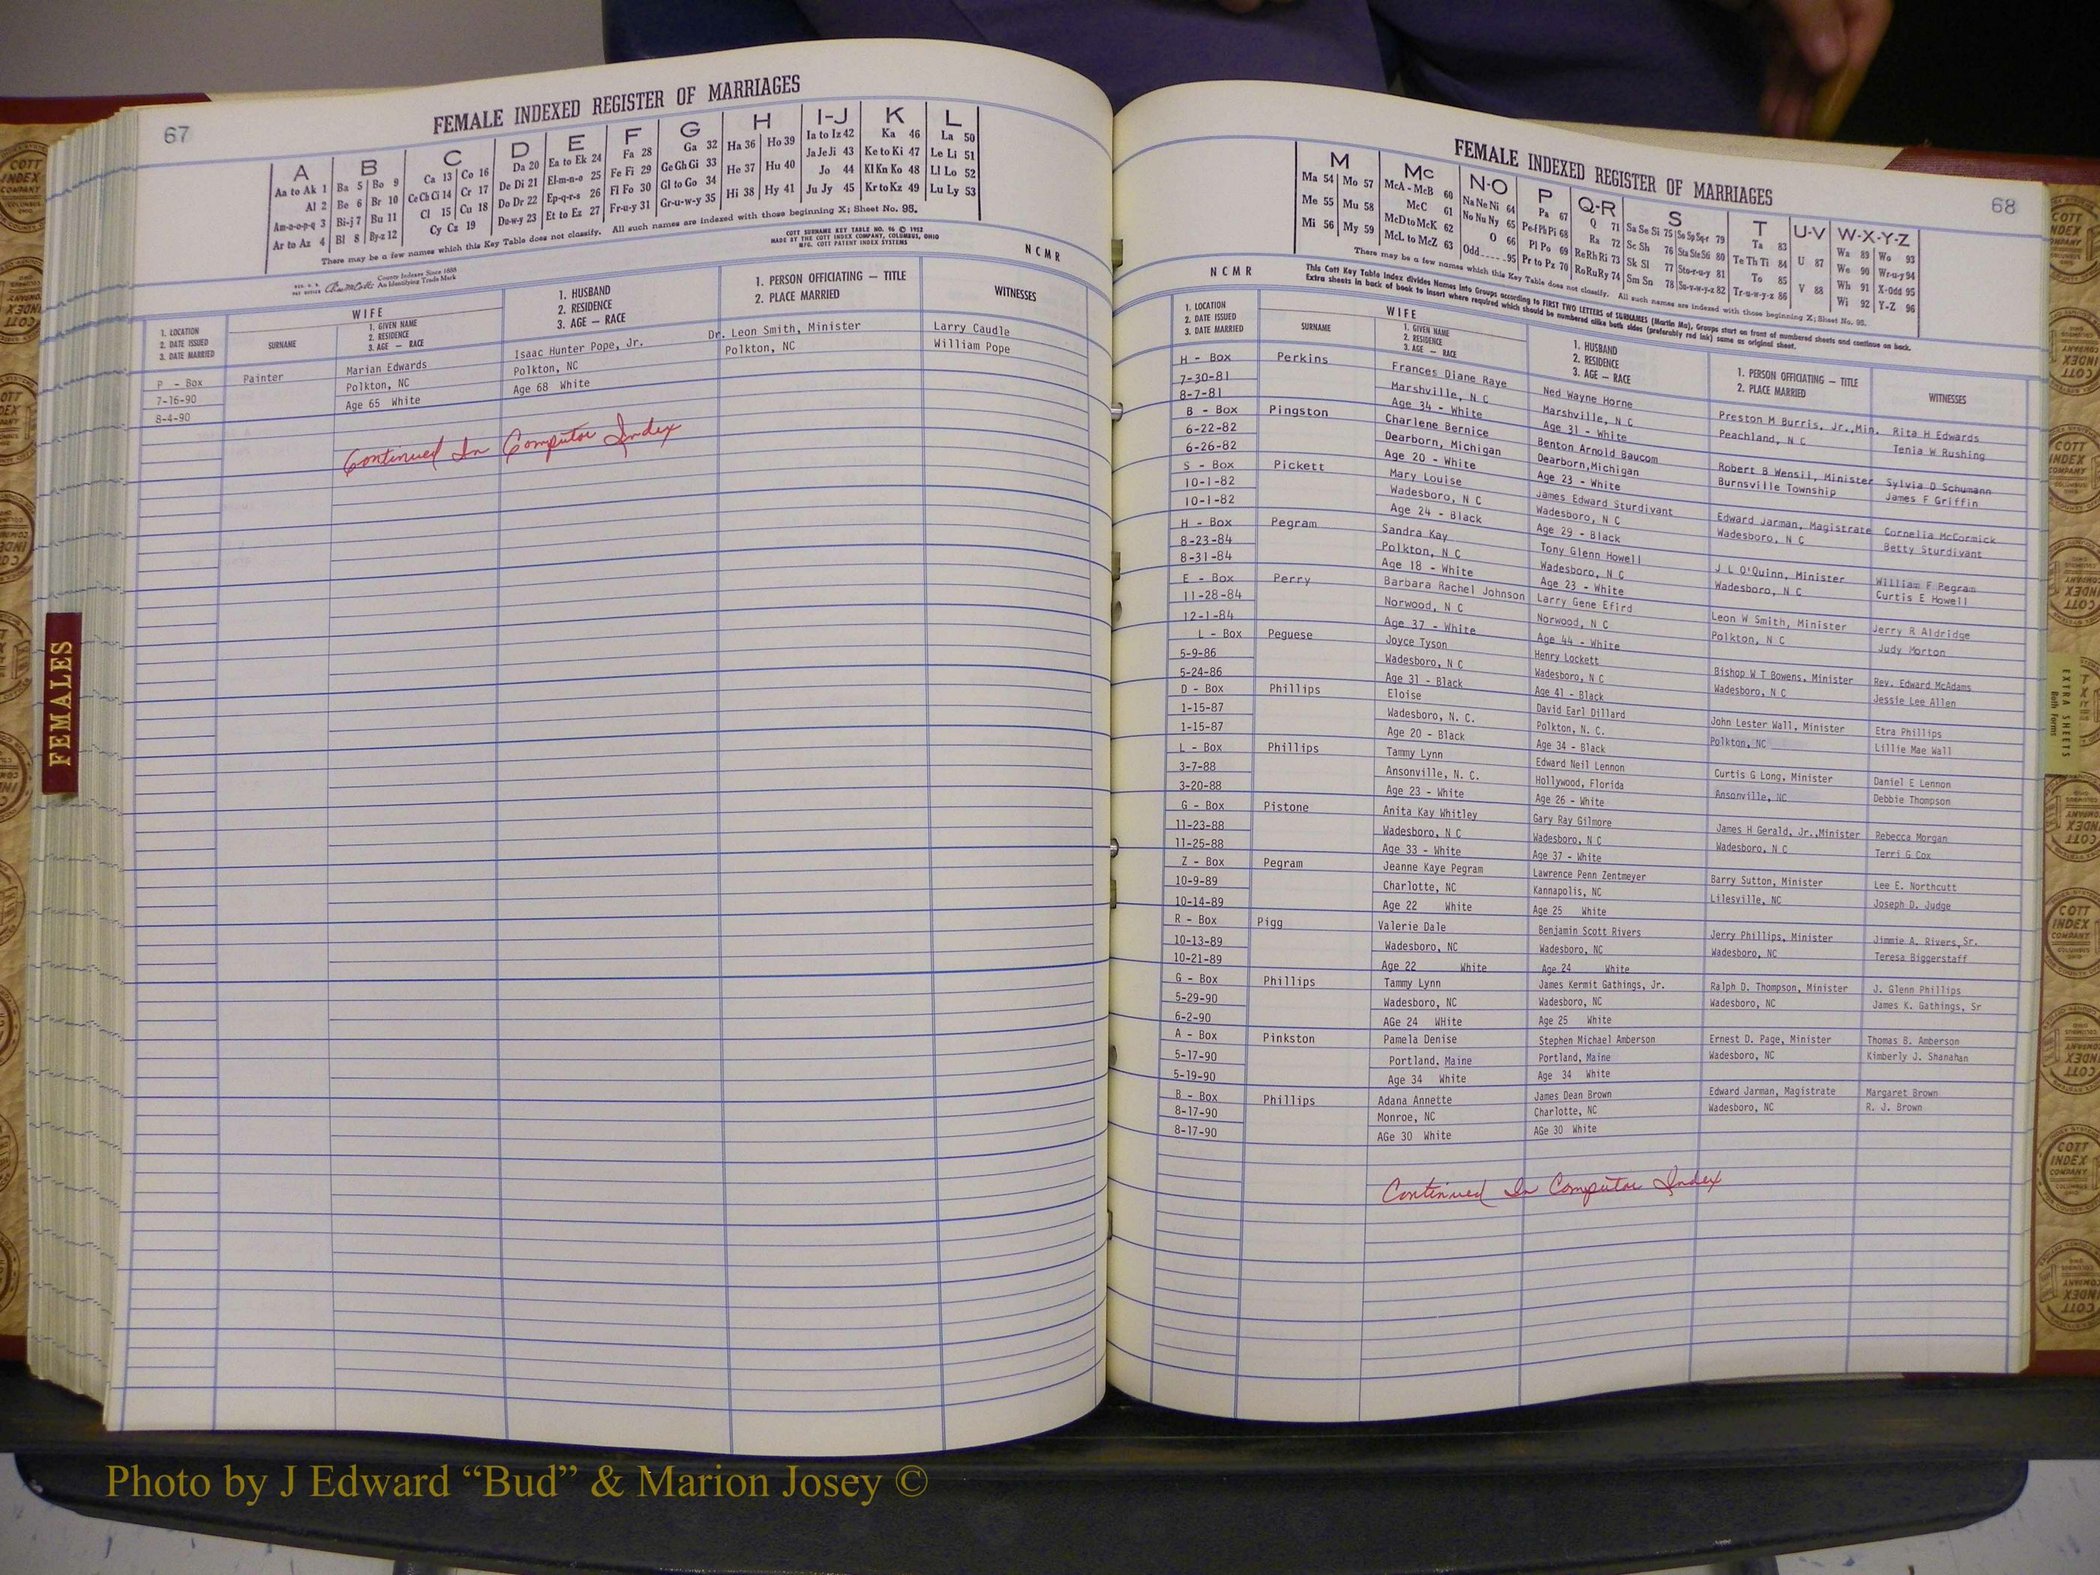 67
FEMALE INDEXED REGISTER OF MARRIAGES
A B C D E F G H I-J K L
Aa to Ak 1 Ba 5 Bo 9 Ca 13 Co 16 Da 20 Ea to Ek 24 Fa 28 Ga 32 Ha 36 Ho 39 Ia to Iz 42 Ka 46 La 50
Al 2 Be 6 Br 10 Ce Ch Ci 14 Cr 17 De Di 21 El-m-n-o 25 Fe Fi 29 Ge Gh Gi 33 He 37 Hu 40 Ja Je Ji 43 Ke to Ki 47 Le Li 51
Am-o-o-p-q 3 Bi-j 7 Bu 11 Cl 15 Cu 18 Do Dr 22 Ep-q-r-s 26 Fl Fo 30 Gl to Go 34 Hi 38 Hy 41 Jo 44 Kl Kn Ko 48 Ll Lo 52
Ar to Az 4 Bl 8 By-z 12 Cy Cz 19 Du-w-y 23 Et to Ez 27 Fr-u-y 31 Gr-u-w-y 35 Ju Jy 45 Kr to Kz 49 Lu Ly 53
There may be a few names which this Key Table does not classify. All such names are indexed with those beginning X; Sheet No. 95.
COTT SURNAME KEY TABLE NO. 96 © 1952
MADE BY THE COTT INDEX COMPANY, COLUMBUS, OHIO
MFG. COTT PATENT INDEX SYSTEMS
NCMR
County Indexes Since 1888
An Identifying Trade Mark
WIFE
1. LOCATION
2. DATE ISSUED
3. DATE MARRIED
SURNAME
1. GIVEN NAME
2. RESIDENCE
3. AGE — RACE
1. HUSBAND
2. RESIDENCE
3. AGE — RACE
1. PERSON OFFICIATING — TITLE
2. PLACE MARRIED
WITNESSES
P - Box Painter Marian Edwards Isaac Hunter Pope, Jr. Dr. Leon Smith, Minister Larry Caudle
7-16-90 Polkton, NC Polkton, NC Polkton, NC William Pope
8-4-90 Age 65 White Age 68 White
Continued In Computer Index
FEMALES
68
FEMALE INDEXED REGISTER OF MARRIAGES
M Mc N-O P Q-R S T U-V W-X-Y-Z
Ma 54 Mo 57 McA - McB 60 Na Ne Ni 64 Pa 67 Q 71 Sa Se Si 75 So Sp Sq-r 79 Ta 83 U 87 Wa 89 Wo 93
Me 55 Mu 58 McC 61 No Nu Ny 65 Pe-f Ph Pi 68 Ra 72 Sc Sh 76 Sta Ste Sti 80 Te Th Ti 84 V 88 We 90 Wr-u-y 94
Mi 56 My 59 McD to McK 62 O 66 Pl Po 69 Re Rh Ri 73 Sk Sl 77 Sto-r-u-y 81 To 85 Wh 91 X-Odd 95
McL to McZ 63 Odd 95 Pr to Pz 70 Ro Ru Ry 74 Sm Sn 78 Su-v-w-y-z 82 Tr-u-w-y-z 86 Wi 92 Y-Z 96
There may be a few names which this Key Table does not classify. All such names are indexed with those beginning X; Sheet No. 95.
NCMR
This Cott Key Table Index divides Names into Groups according to FIRST TWO LETTERS of SURNAMES (Martin Ma), Groups start on front of numbered sheets and continue on back.
Extra sheets in back of book to insert where required which should be numbered alike both sides (preferably red ink) same as original sheet.
WIFE
1. LOCATION
2. DATE ISSUED
3. DATE MARRIED
SURNAME
1. GIVEN NAME
2. RESIDENCE
3. AGE — RACE
1. HUSBAND
2. RESIDENCE
3. AGE — RACE
1. PERSON OFFICIATING — TITLE
2. PLACE MARRIED
WITNESSES
H - Box Perkins Frances Diane Raye Ned Wayne Horne Preston M Burris, Jr.,Min. Rita H Edwards
7-30-81 Marshville, N C Marshville, N C Peachland, N C Tenia W Rushing
8-7-81 Age 34 - White Age 31 - White
B - Box Pingston Charlene Bernice Benton Arnold Baucom Robert B Wensil, Minister Sylvia D Schumann
6-22-82 Dearborn, Michigan Dearborn,Michigan Burnsville Township James F Griffin
6-26-82 Age 20 - White Age 23 - White
S - Box Pickett Mary Louise James Edward Sturdivant Edward Jarman, Magistrate Cornelia McCormick
10-1-82 Wadesboro, N C Wadesboro, N C Wadesboro, N C Betty Sturdivant
10-1-82 Age 24 - Black Age 29 - Black
H - Box Pegram Sandra Kay Tony Glenn Howell J L O'Quinn, Minister William F Pegram
8-23-84 Polkton, N C Wadesboro, N C Wadesboro, N C Curtis E Howell
8-31-84 Age 18 - White Age 23 - White
E - Box Perry Barbara Rachel Johnson Larry Gene Efird Leon W Smith, Minister Jerry R Aldridge
11-28-84 Norwood, N C Norwood, N C Polkton, N C Judy Morton
12-1-84 Age 37 - White Age 44 - White
L - Box Peguese Joyce Tyson Henry Lockett Bishop W T Bowens, Minister Rev. Edward McAdams
5-9-86 Wadesboro, N C Wadesboro, N C Wadesboro, N C Jessie Lee Allen
5-24-86 Age 31 - Black Age 41 - Black
D - Box Phillips Eloise David Earl Dillard John Lester Wall, Minister Etra Phillips
1-15-87 Wadesboro, N. C. Polkton, N. C. Polkton, NC Lillie Mae Wall
1-15-87 Age 20 - Black Age 34 - Black
L - Box Phillips Tammy Lynn Edward Neil Lennon Curtis G Long, Minister Daniel E Lennon
3-7-88 Ansonville, N. C. Hollywood, Florida Ansonville, NC Debbie Thompson
3-20-88 Age 23 - White Age 26 - White
G - Box Pistone Anita Kay Whitley Gary Ray Gilmore James H Gerald, Jr.,Minister Rebecca Morgan
11-23-88 Wadesboro, N C Wadesboro, N C Wadesboro, N C Terri G Cox
11-25-88 Age 33 - White Age 37 - White
Z - Box Pegram Jeanne Kaye Pegram Lawrence Penn Zentmeyer Barry Sutton, Minister Lee E. Northcutt
10-9-89 Charlotte, NC Kannapolis, NC Lilesville, NC Joseph D. Judge
10-14-89 Age 22 White Age 25 White
R - Box Pigg Valerie Dale Benjamin Scott Rivers Jerry Phillips, Minister Jimmie A. Rivers, Sr.
10-13-89 Wadesboro, NC Wadesboro, NC Wadesboro, NC Teresa Biggerstaff
10-21-89 Age 22 White Age 24 White
G - Box Phillips Tammy Lynn James Kermit Gathings, Jr. Ralph D. Thompson, Minister J. Glenn Phillips
5-29-90 Wadesboro, NC Wadesboro, NC Wadesboro, NC James K. Gathings, Sr
6-2-90 AGe 24 WHite Age 25 White
A - Box Pinkston Pamela Denise Stephen Michael Amberson Ernest D. Page, Minister Thomas B. Amberson
5-17-90 Portland, Maine Portland, Maine Wadesboro, NC Kimberly J. Shanahan
5-19-90 Age 34 White Age 34 White
B - Box Phillips Adana Annette James Dean Brown Edward Jarman, Magistrate Margaret Brown
8-17-90 Monroe, NC Charlotte, NC Wadesboro, NC R. J. Brown
8-17-90 AGe 30 White AGe 30 White
Continued In Computer Index
EXTRA SHEETS
Both Forms
COTT
INDEX
COMPANY
COLUMBUS
OHIO
Photo by J Edward “Bud” & Marion Josey ©